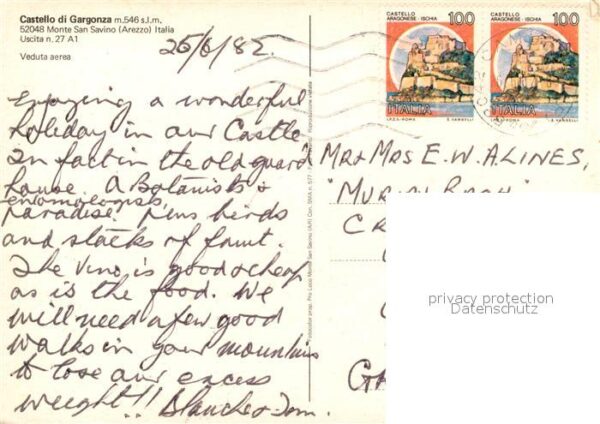 Castello di Gargonza m.546 s.l.m.
52048 Monte San Savino (Arezzo) Italia
Uscita n. 27 A1
Veduta aerea
25/6/82.
Enjoying a wonderful
holiday in our Castle
In fact in the old guard
house. A Botanists &
entomologists,
paradise. plus birds
and stacks of faunt.
The Vino is good & cheap
as is the food. We
will need a few good
walks in your mountains
to lose our excess
weight!! Blanche & Tom.
CASTELLO
ARAGONESE - ISCHIA 100
ITALIA
I.P.Z.S. - ROMA E. VANGELLI
CASTELLO
ARAGONESE - ISCHIA 100
ITALIA
I.P.Z.S. - ROMA E. VANGELLI
MR & MRS E. W. A. LINES,
CR
privacy protection
Datenschutz